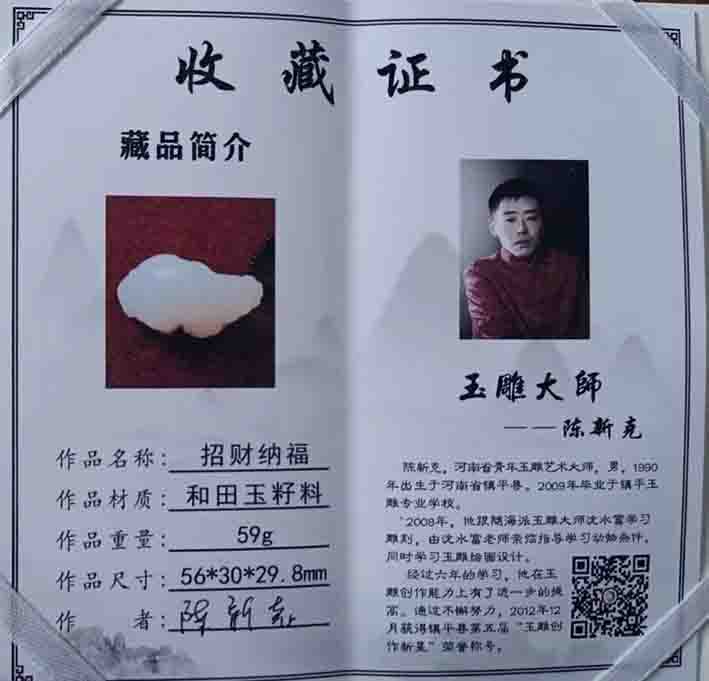 收藏证书
藏品简介
作品名称：招财纳福
作品材质：和田玉籽料
作品重量：59g
作品尺寸：56*30*29.8mm
作者：陈新克
玉雕大師
——陈新克
陈新克，河南省青年玉雕艺术大师，男，1990
年出生于河南省镇平县。2009年毕业于镇平玉
雕专业学校。
2008年，他跟随海派玉雕大师沈水富学习
雕刻，由沈水富老师亲临指导学习动物条件，
同时学习玉雕绘画设计。
经过六年的学习，他在玉
雕创作能力上有了进一步的提
高。通过不懈努力，2012年12
月获得镇平县第五届“玉雕创
作新星”荣誉称号。